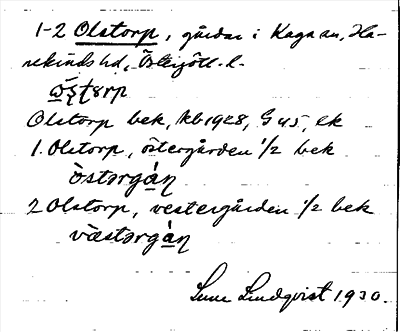 1-2 Olstorp, gårdar i Kaga sn, Ha-
nekinds hd, Östergötl. l.
òstorp
Olstorp bek, kb 1928, G45, ek
1. Olstorp, östergården 1/2 bek
òstərgàn̥
2 Olstorp, vestergården 1/2 bek
væ̀stərgàn̥
Sune Lindqvist 1930.